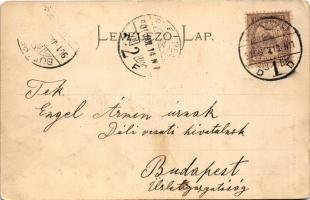 LEVELEZŐ LAP.
Tek.
Engel Ármin urnak
Déli vasuti hivatalnok
Budapest
Üzletigazgatóság